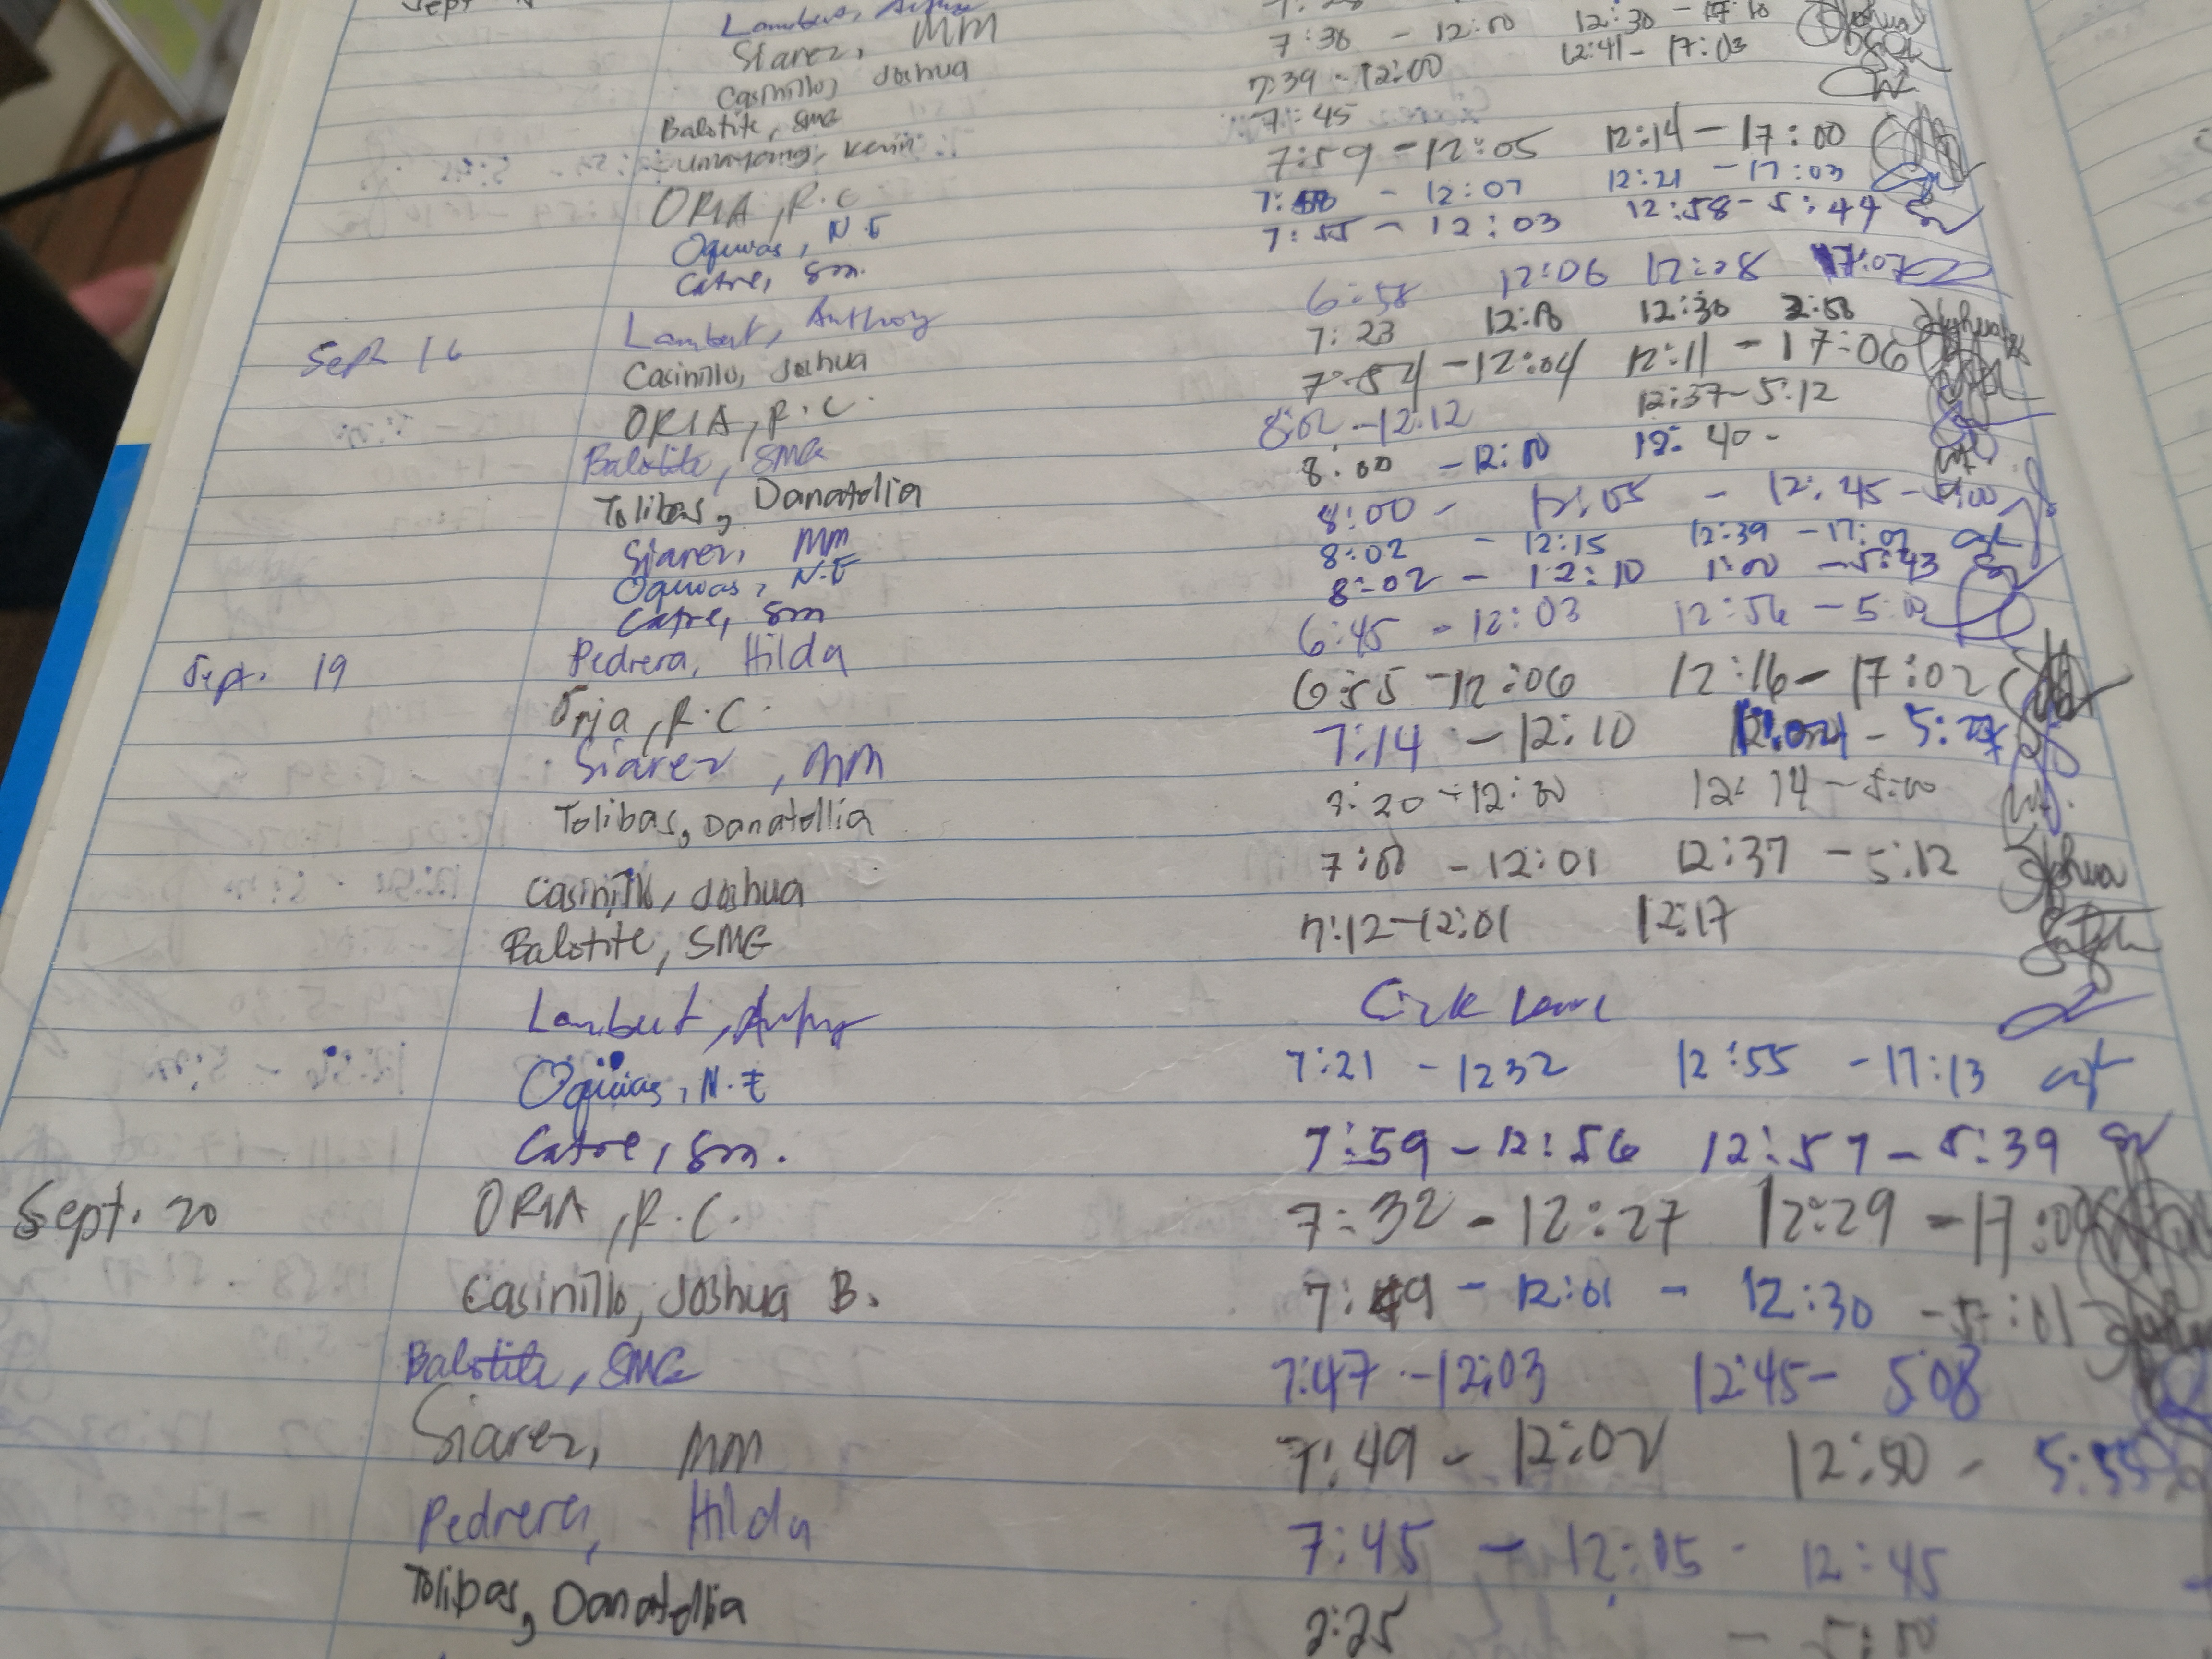 Sept
Lambert,
Siarez, MM 7:38 - 12:00 12:30 - 17:10
Casinillo, Joshua 7:39 - 12:00 12:41 - 17:03
Balotite, SMG 7:45
Kevin 7:59 - 12:05 12:14 - 17:00
ORIA, R.C - 12:07 12:21 - 17:03
Oquias, N.E 7:55 - 12:03 12:58 - 5:44
Catre, Sm.
Sept 16 Lambert, Anthony 6:58 12:06 12:08 17:07
Casinillo, Joshua 7:23 12:30 2:58
ORIA, R.C. 7:54 - 12:04 12:11 - 17:06
Balotite, SMG 8:02 - 12:12 12:37 - 5:12
Tolibas, Danatollia 8:00 - 12:00 12:40 -
Siarez, MM 8:00 - 12:05 - 12:45 - 5:00
Oquias, N.E 8:02 - 12:15 12:39 - 17:07
Catre, Sm 8:02 - 12:10 1:00 - 5:43
Sept. 19 Pedrera, Hilda 6:45 - 12:03 12:56 - 5:00
Oria, R.C. 6:55 - 12:06 12:16 - 17:02
Siarez, MM 7:14 - 12:10
Tolibas, Danatollia 7:20 - 12:00 12:14 - 5:00
Casinillo, Joshua 7:00 - 12:01 12:37 - 5:12 Joshua
Balotite, SMG 7:12 - 12:01 12:17
Lambert, Sick Leave
Oquias, N.E 7:21 - 1232 12:55 - 17:13
Catre, Sm. 7:59 - 12:56 12:57 - 5:39
Sept. 20 ORIA, R.C. 7:32 - 12:27 12:29 - 17:00
Casinillo, Joshua B. 7:49 - 12:01 - 12:30 - 5:01
Balotite, SMG 7:47 - 12:03 12:45 - 508
Siarez, MM 7:49 - 12:02 12:50 - 5:55
Pedrera, Hilda 7:45 - 12:05 - 12:45
Tolibas, Danatollia 2:25 - 5:00